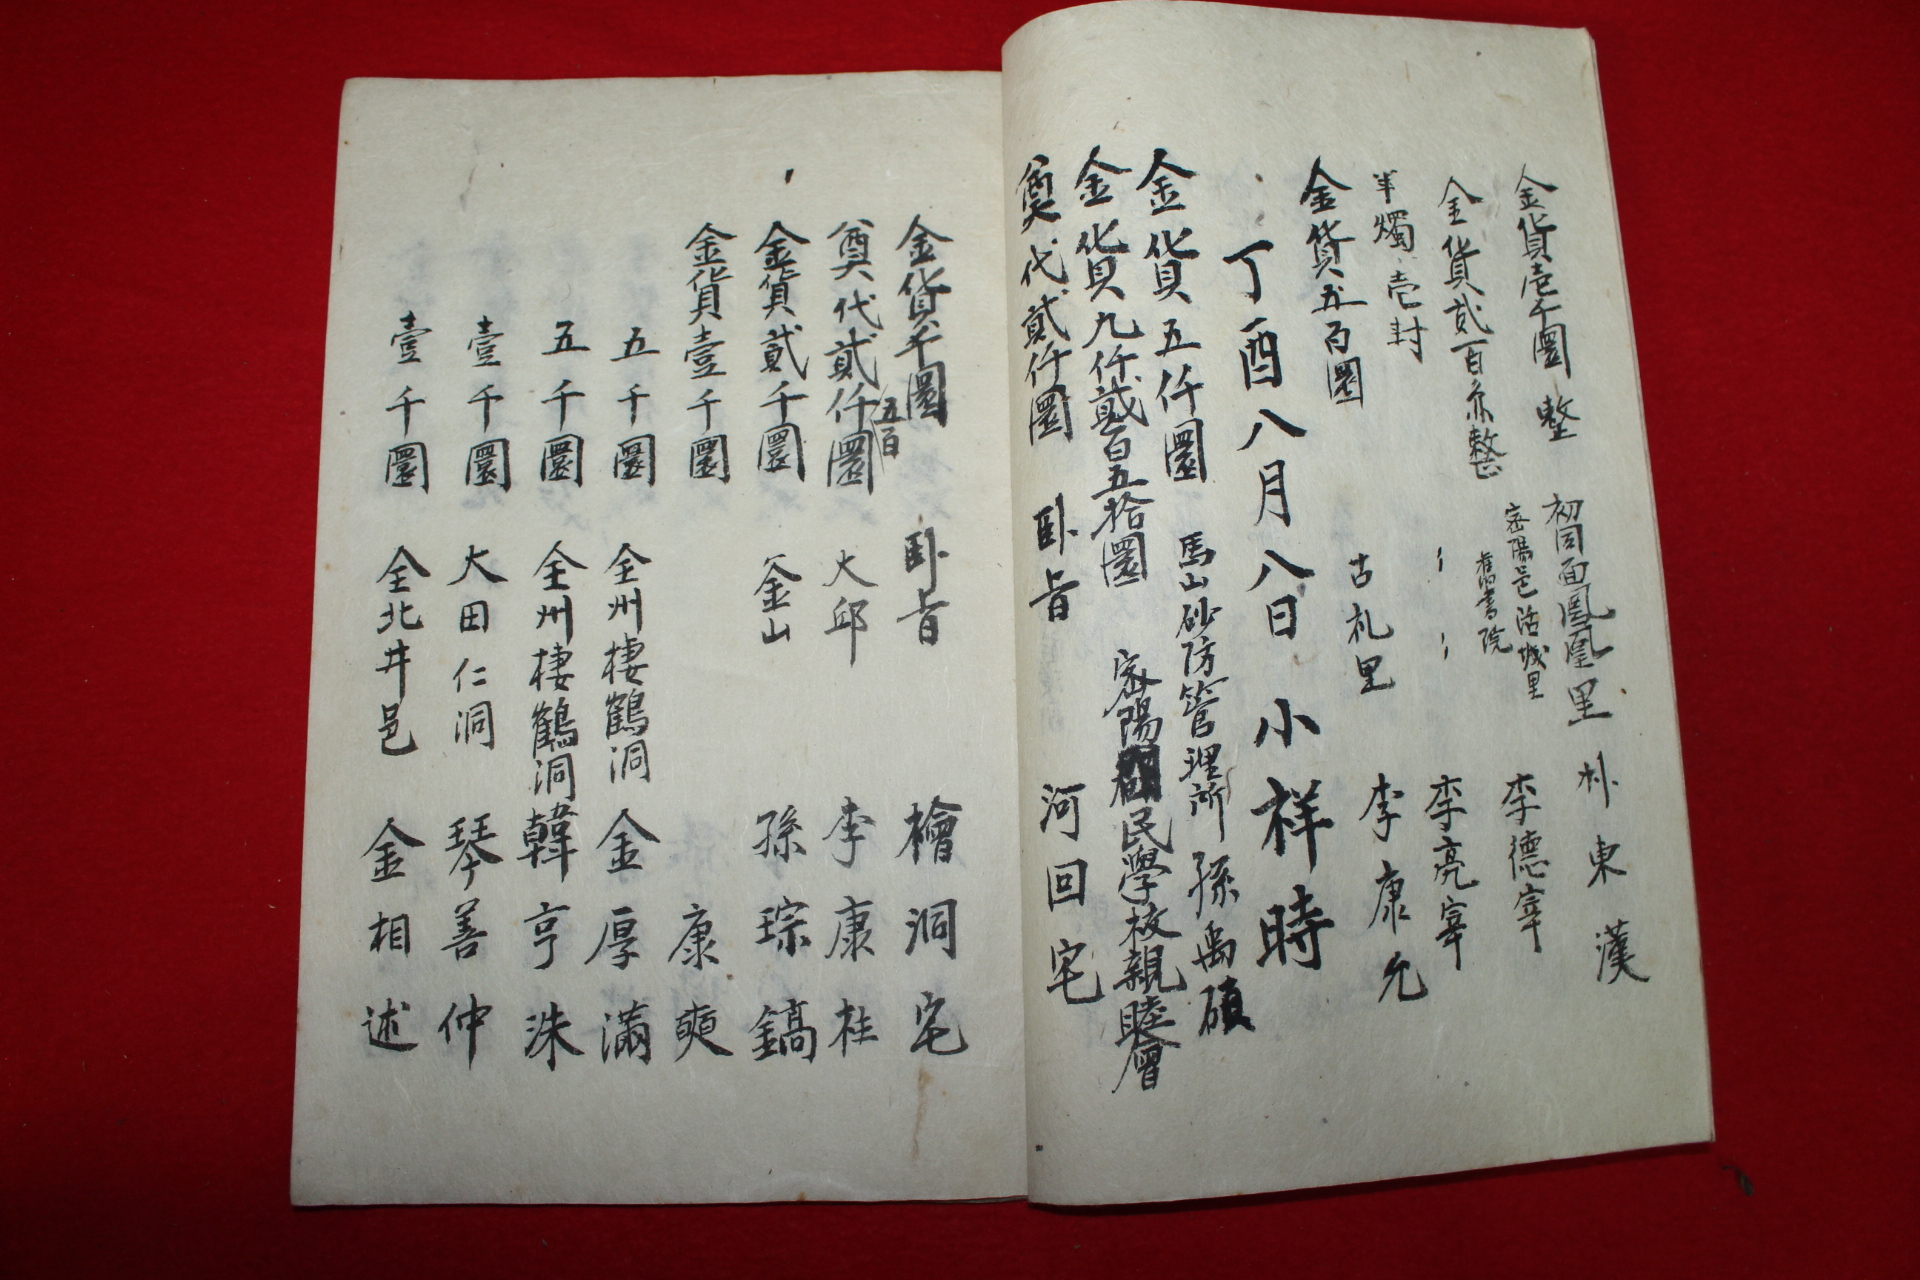 金貨壱千圜整 初同面鳳凰里 朴東漢
金貨貮百 整 密陽邑活城里 舊書院 李德宰
半燭壱封 〃 〃 李亮宰
金貨五百圜 古札里 李康允
丁酉八月八日 小祥時
金貨五仟圜 馬山砂防管理所 孫禹碩
金貨九仟貳百五拾圜 密陽 民學校親睦會
奠代貳仟圜 卧旨 河回宅
金貨 千圜 卧旨 檜洞宅
奠代貳仟五百圜 大邱 李康柱
金貨貳千圜 釜山 孫琮鎬
金貨壹千圜 康奭
五千圜 全州棲鶴洞 金厚滿
五千圜 全州棲鶴洞 韓亨洙
壹千圜 大田仁洞 琴善仲
壹千圜 全北井邑 金相述